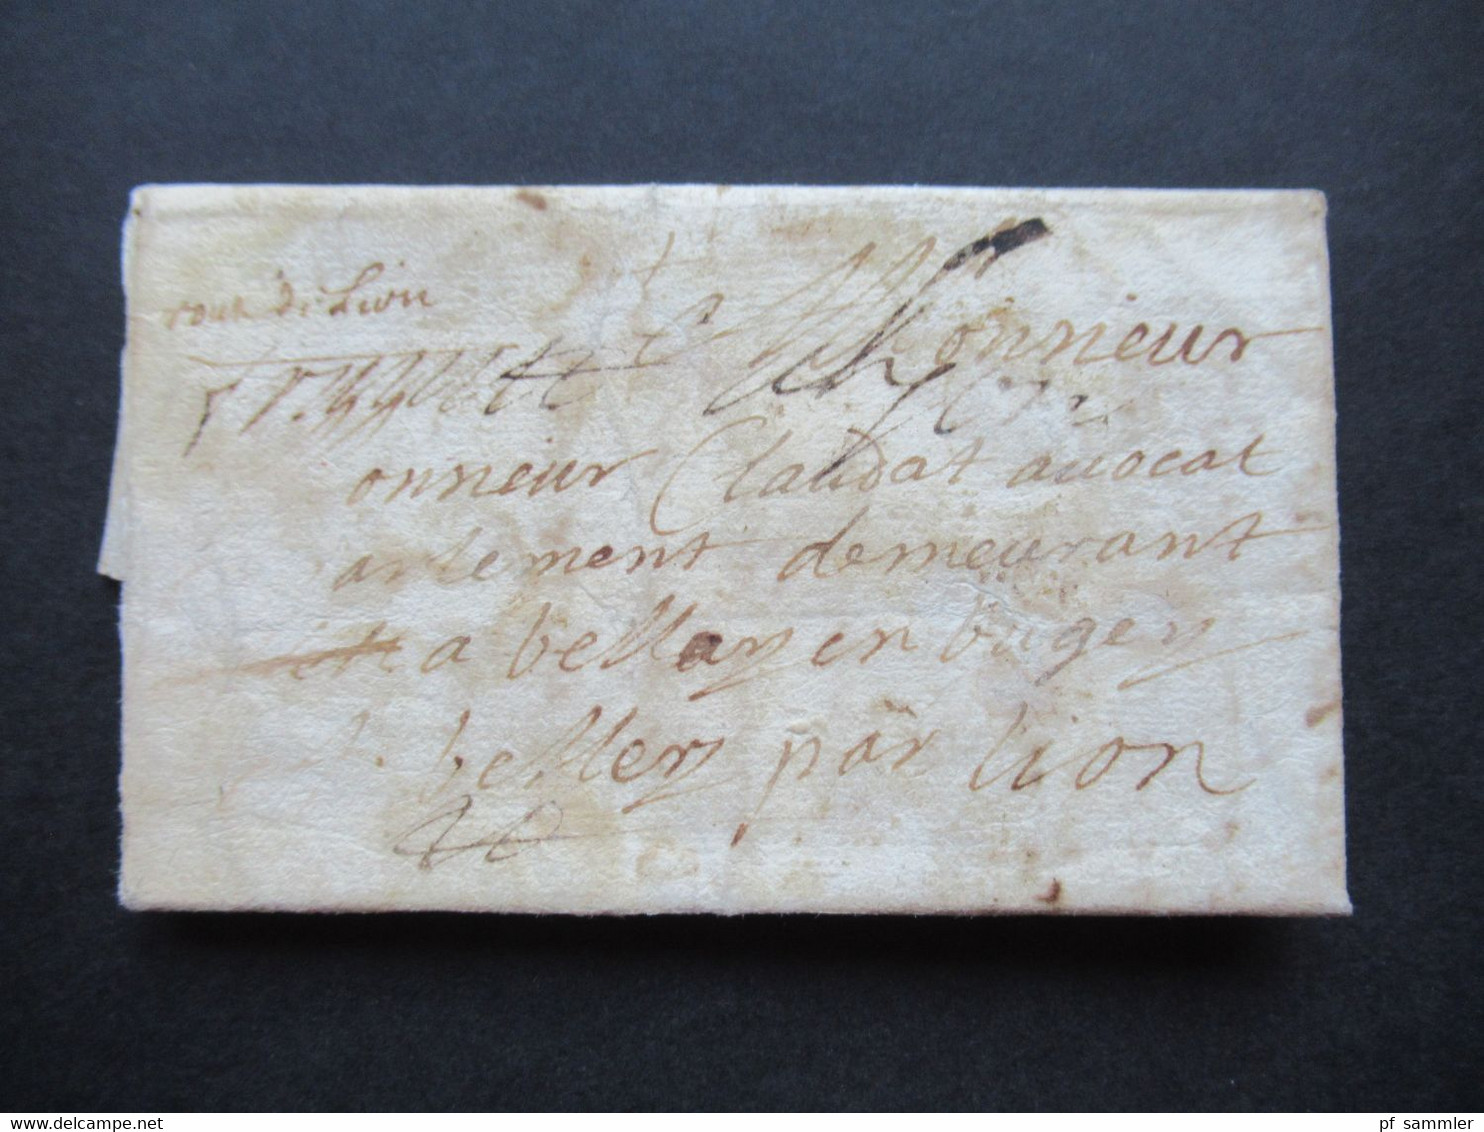 route de Lion
Monsieur
onnieur Claudat auocat
arlement demeurant
a bellay en bugey
belley par lion
www.delcampe.net
pf_sammler